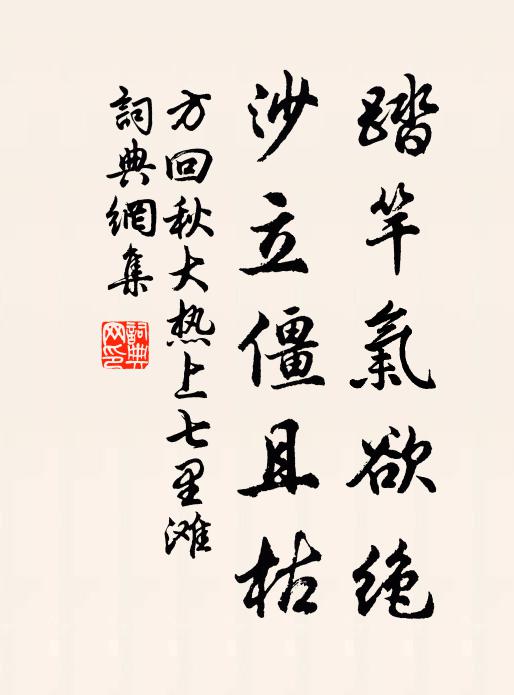 踏竿氣欲绝
沙立僵且枯
方回秋大热上七里滩
詞典網集
詞典
网印